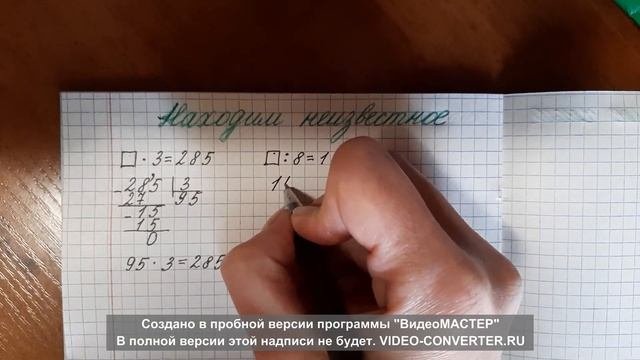 Находим неизвестное
□ · 3 = 285
- 285 | 3
27 95
- 15
15
0
95 · 3 = 285
□ : 8 = 1
1
Создано в пробной версии программы "ВидеоМАСТЕР"
В полной версии этой надписи не будет. VIDEO-CONVERTER.RU